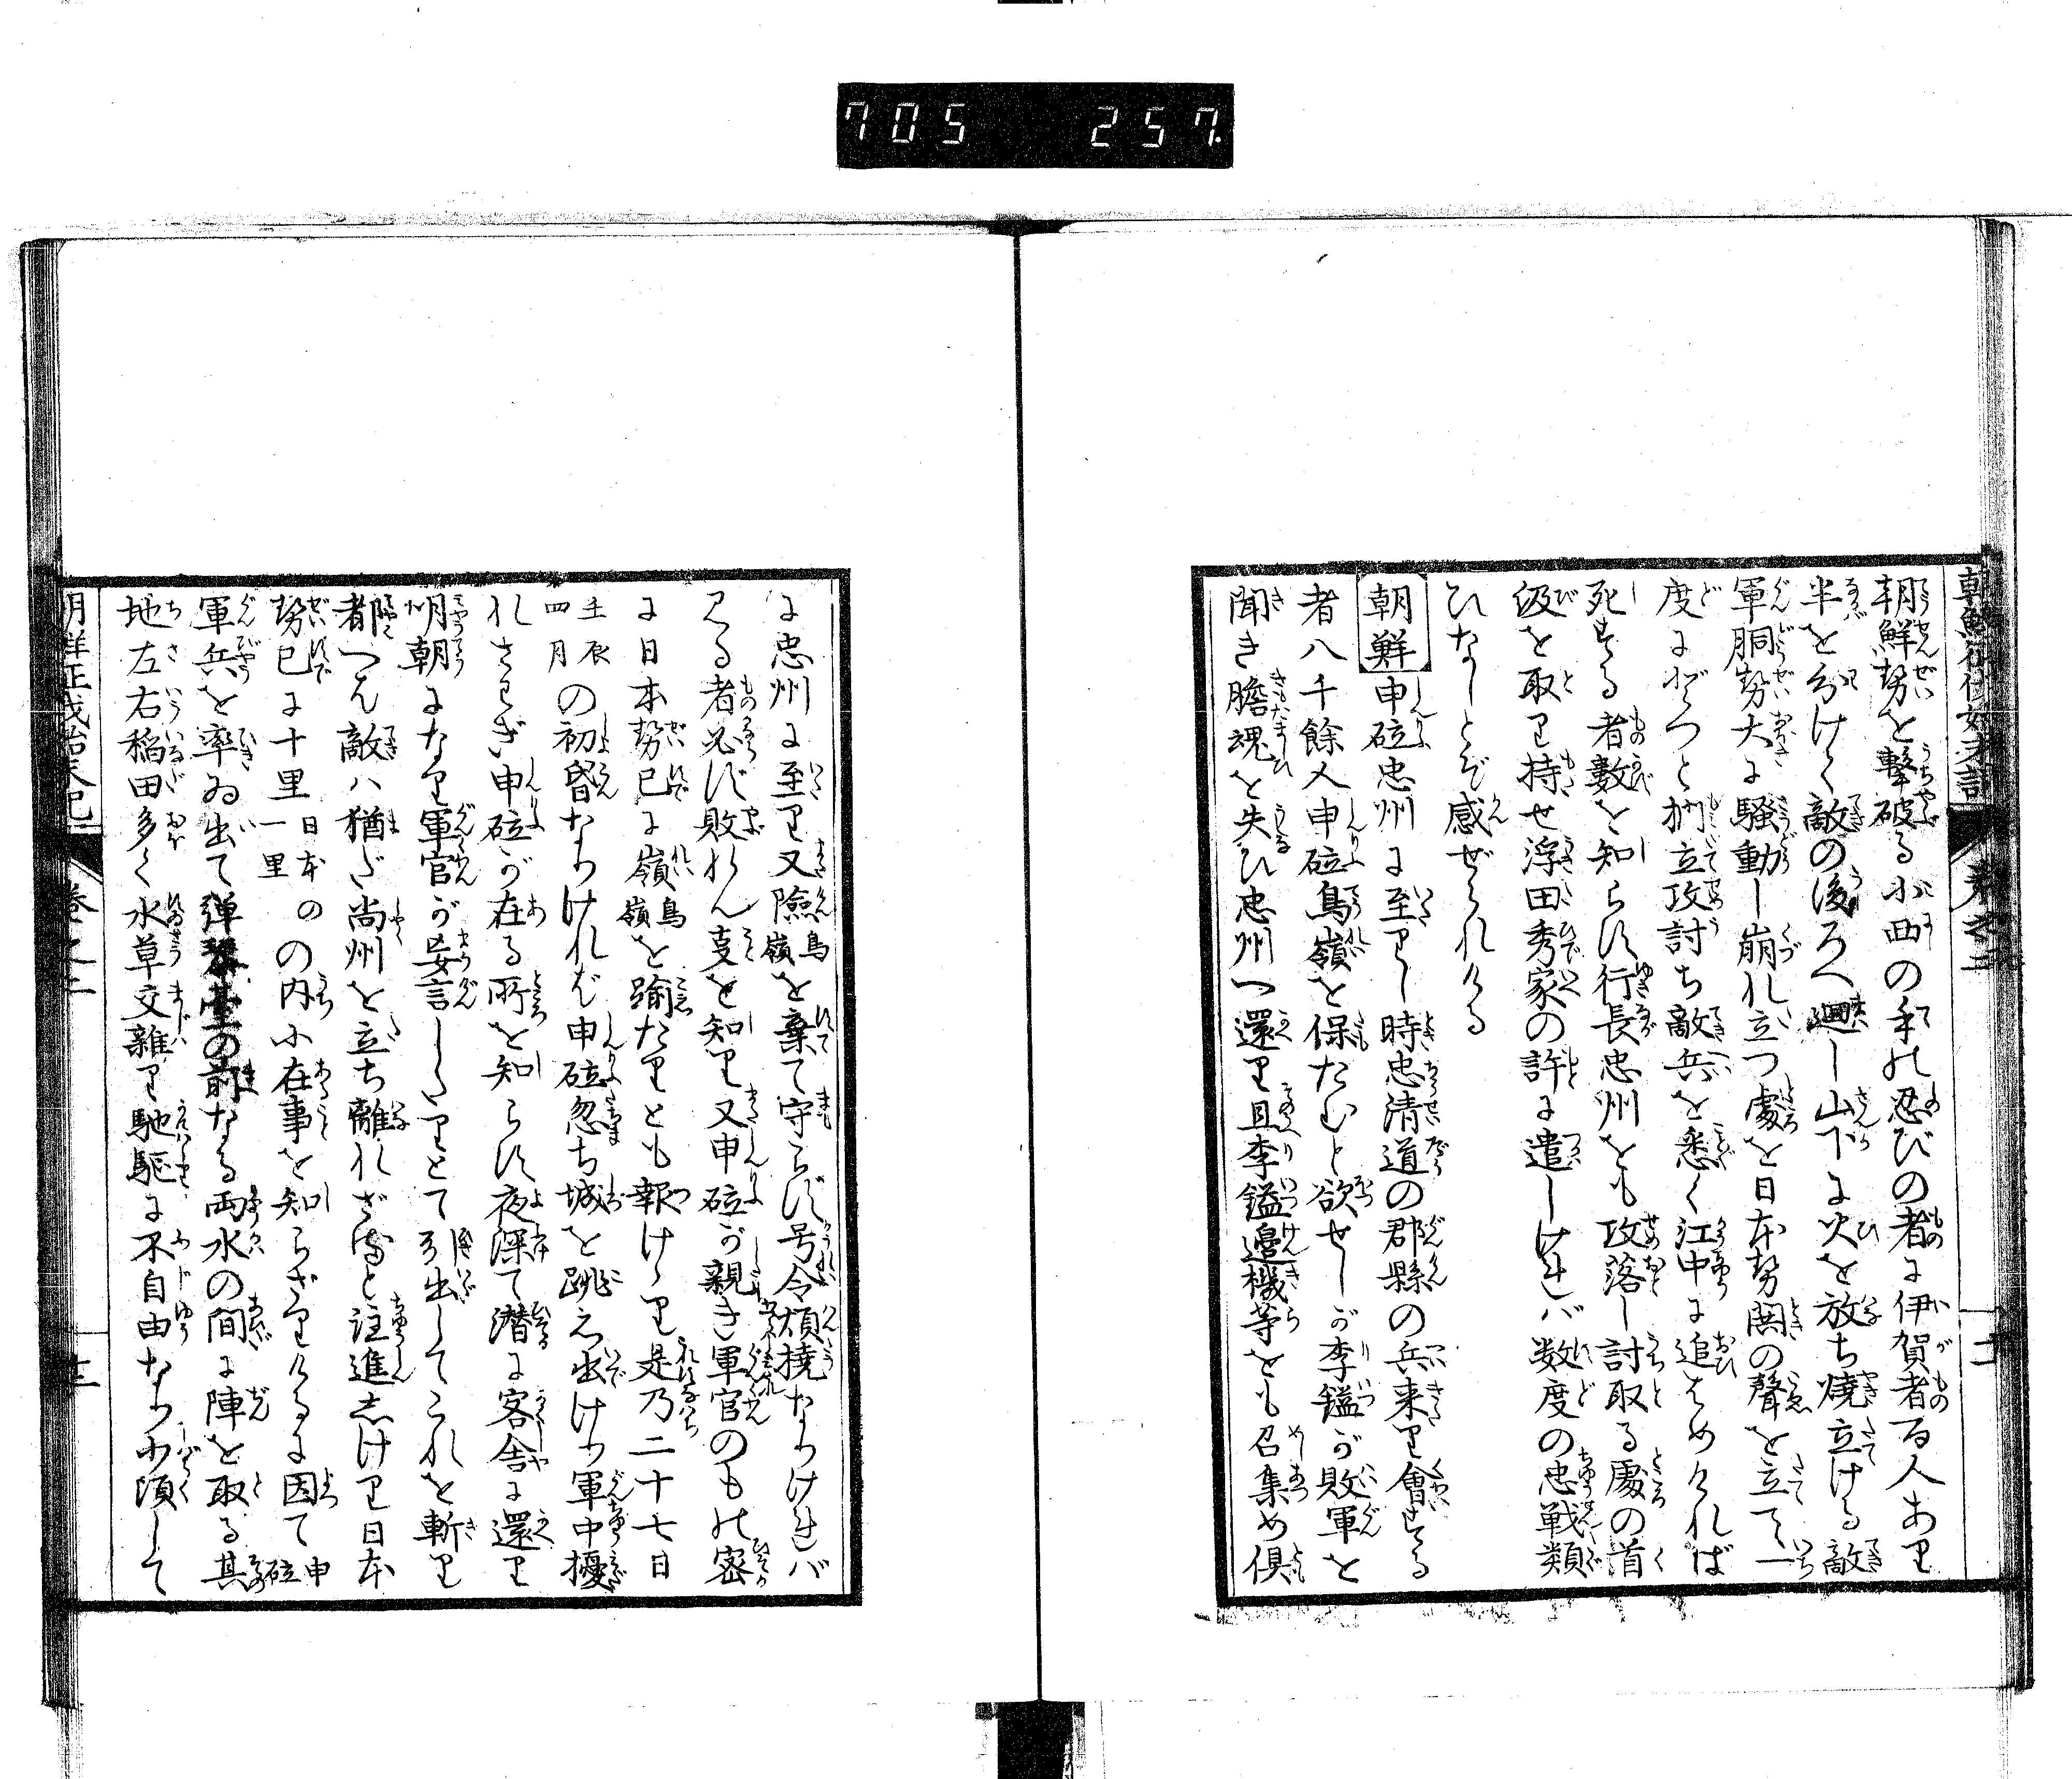 705 257
朝鮮勢を撃破る小西の手の忍びの者に伊賀者百人あり
半を分けて敵の後ろへ廻し山下に火を放ち焼立ける敵
軍胴勢大に騒動し崩れ立つ處を日本勢鬨の聲を立て一
度にどつと押立攻討ち敵兵を悉く江中に追はめければ
死する者數を知らず行長忠州をも攻落し討取る處の首
級を取り持せ浮田秀家の許に遣しければ数度の忠戦類
ひなしとぞ感ぜられける
朝鮮申砬忠州に至りし時忠清道の郡縣の兵来り會する
者八千餘人申砬鳥嶺を保たむと欲せしが李鎰が敗軍を
聞き膽魂を失ひ忠州へ還り且李鎰邊機等をも召集め倶
に忠州に至り又險鳥嶺を棄て守らず号令煩撓なりければ
見る者必ず敗れん事を知り又申砬が親き軍官のもの密
に日本勢已に嶺鳥嶺を踰たりとも報けり是乃二十七日
壬辰四月の初昏なりければ申砬忽ち城を跳え出けり軍中擾
れさわぎ申砬が在る所を知らず夜深て潜に客舎に還り
明朝になり軍官が妄言したりとて引出してこれを斬り
都へハ敵ハ猶だ尚州を立ち離れざると注進しけり日本
勢已に十里日本の一里の内に在事を知らざりけるに因て申砬
軍兵を率ゐ出て弾琴臺の前なる両水の間に陣を取る其
地左右稲田多く水草交雑り馳驅に不自由なり少頃して
巻之二